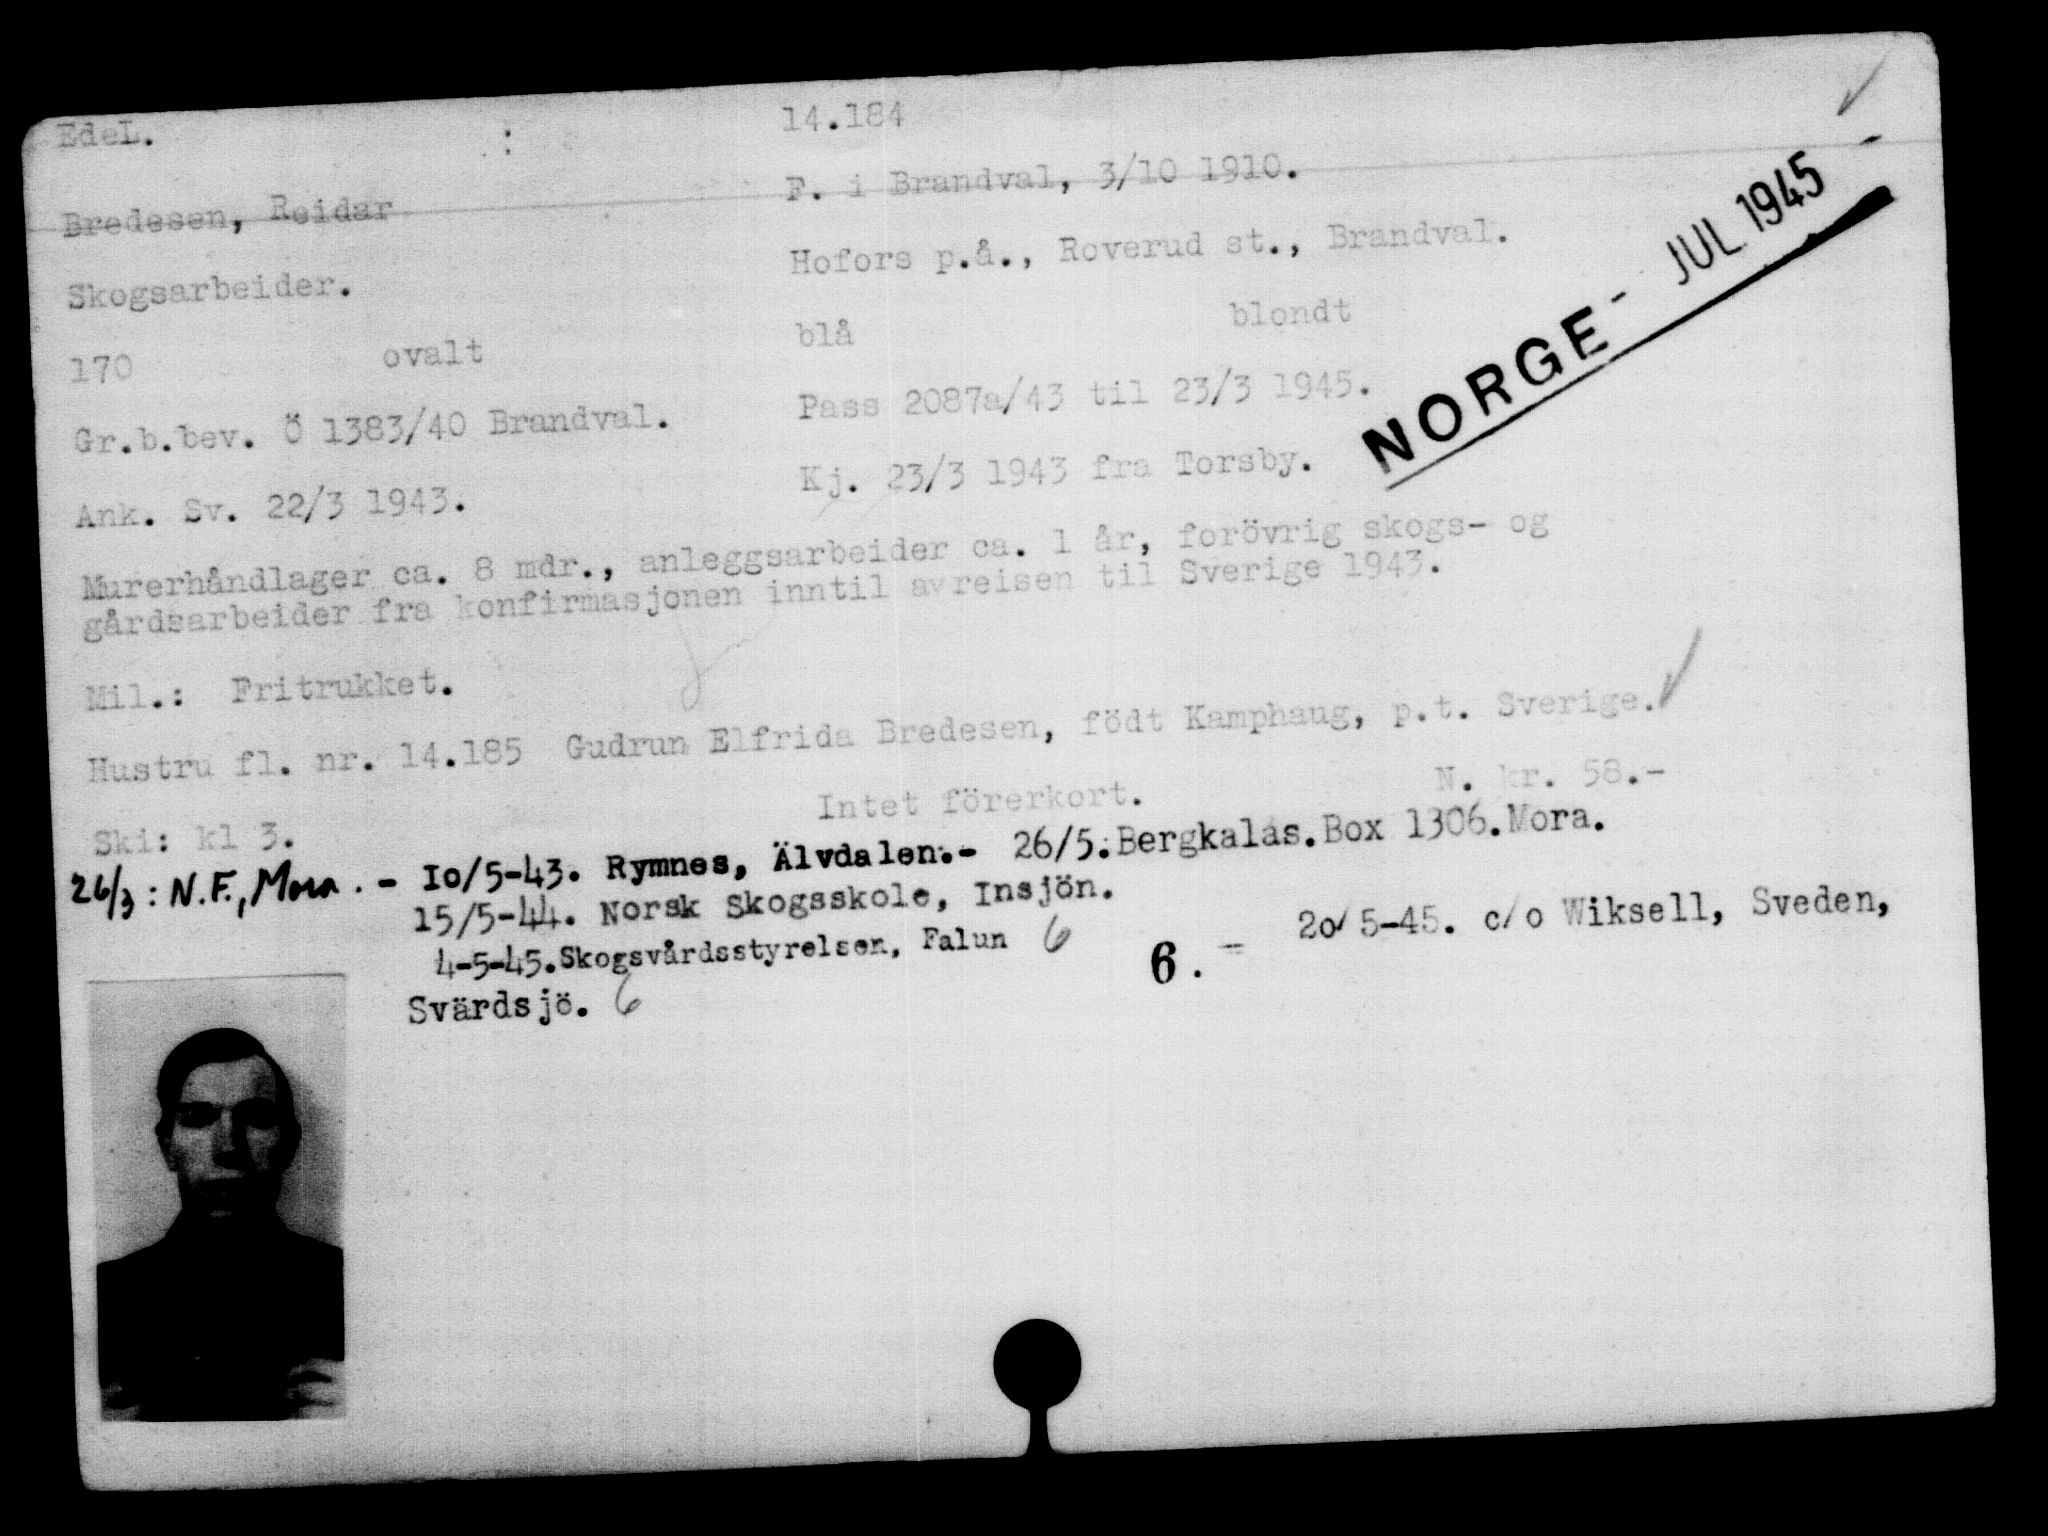 EdeL. : 14.184
Bredesen, Reidar F. i Brandval, 3/10 1910.
Skogsarbeider. Hofors p.å., Roverud st., Brandval.
170 ovalt blå blondt
Gr.b.bev. Ö 1383/40 Brandval. Pass 2087a/43 til 23/3 1945.
NORGE - JUL 1945
Ank. Sv. 22/3 1943. Kj. 23/3 1943 fra Torsby.
Murerhåndlager ca. 8 mdr., anleggsarbeider ca. 1 år, forövrig skogs- og
gårdsarbeider fra konfirmasjonen inntil avreisen til Sverige 1943.
Mil.: Fritrukket.
Hustru fl. nr. 14.185 Gudrun Elfrida Bredesen, födt Kamphaug, p.t. Sverige.
Ski: kl 3. Intet förerkort. N. kr. 58.-
26/3: N.F., Mora. - 10/5-43. Rymnes, Älvdalen.- 26/5.Bergkalås.Box 1306.Mora.
15/5-44. Norsk Skogsskole, Insjön.
4-5-45.Skogsvårdsstyrelsen, Falun 6 6. - 20/5-45. c/o Wiksell, Sveden,
Svärdsjö. 6